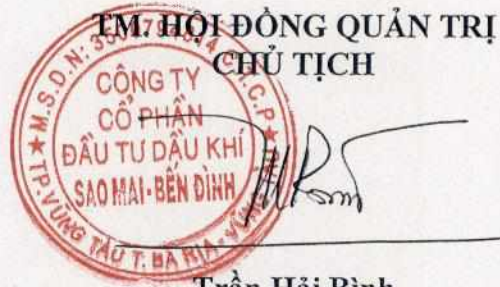 TM. HỘI ĐỒNG QUẢN TRỊ
CHỦ TỊCH
CÔNG TY
CỔ PHẦN
ĐẦU TƯ DẦU KHÍ
SAO MAI-BẾN ĐÌNH
M.S.D.N:
C.T.C.P
TP.VŨNG TÀU T. BÀ RỊA-VŨNG TÀU
Trần Hải Bình